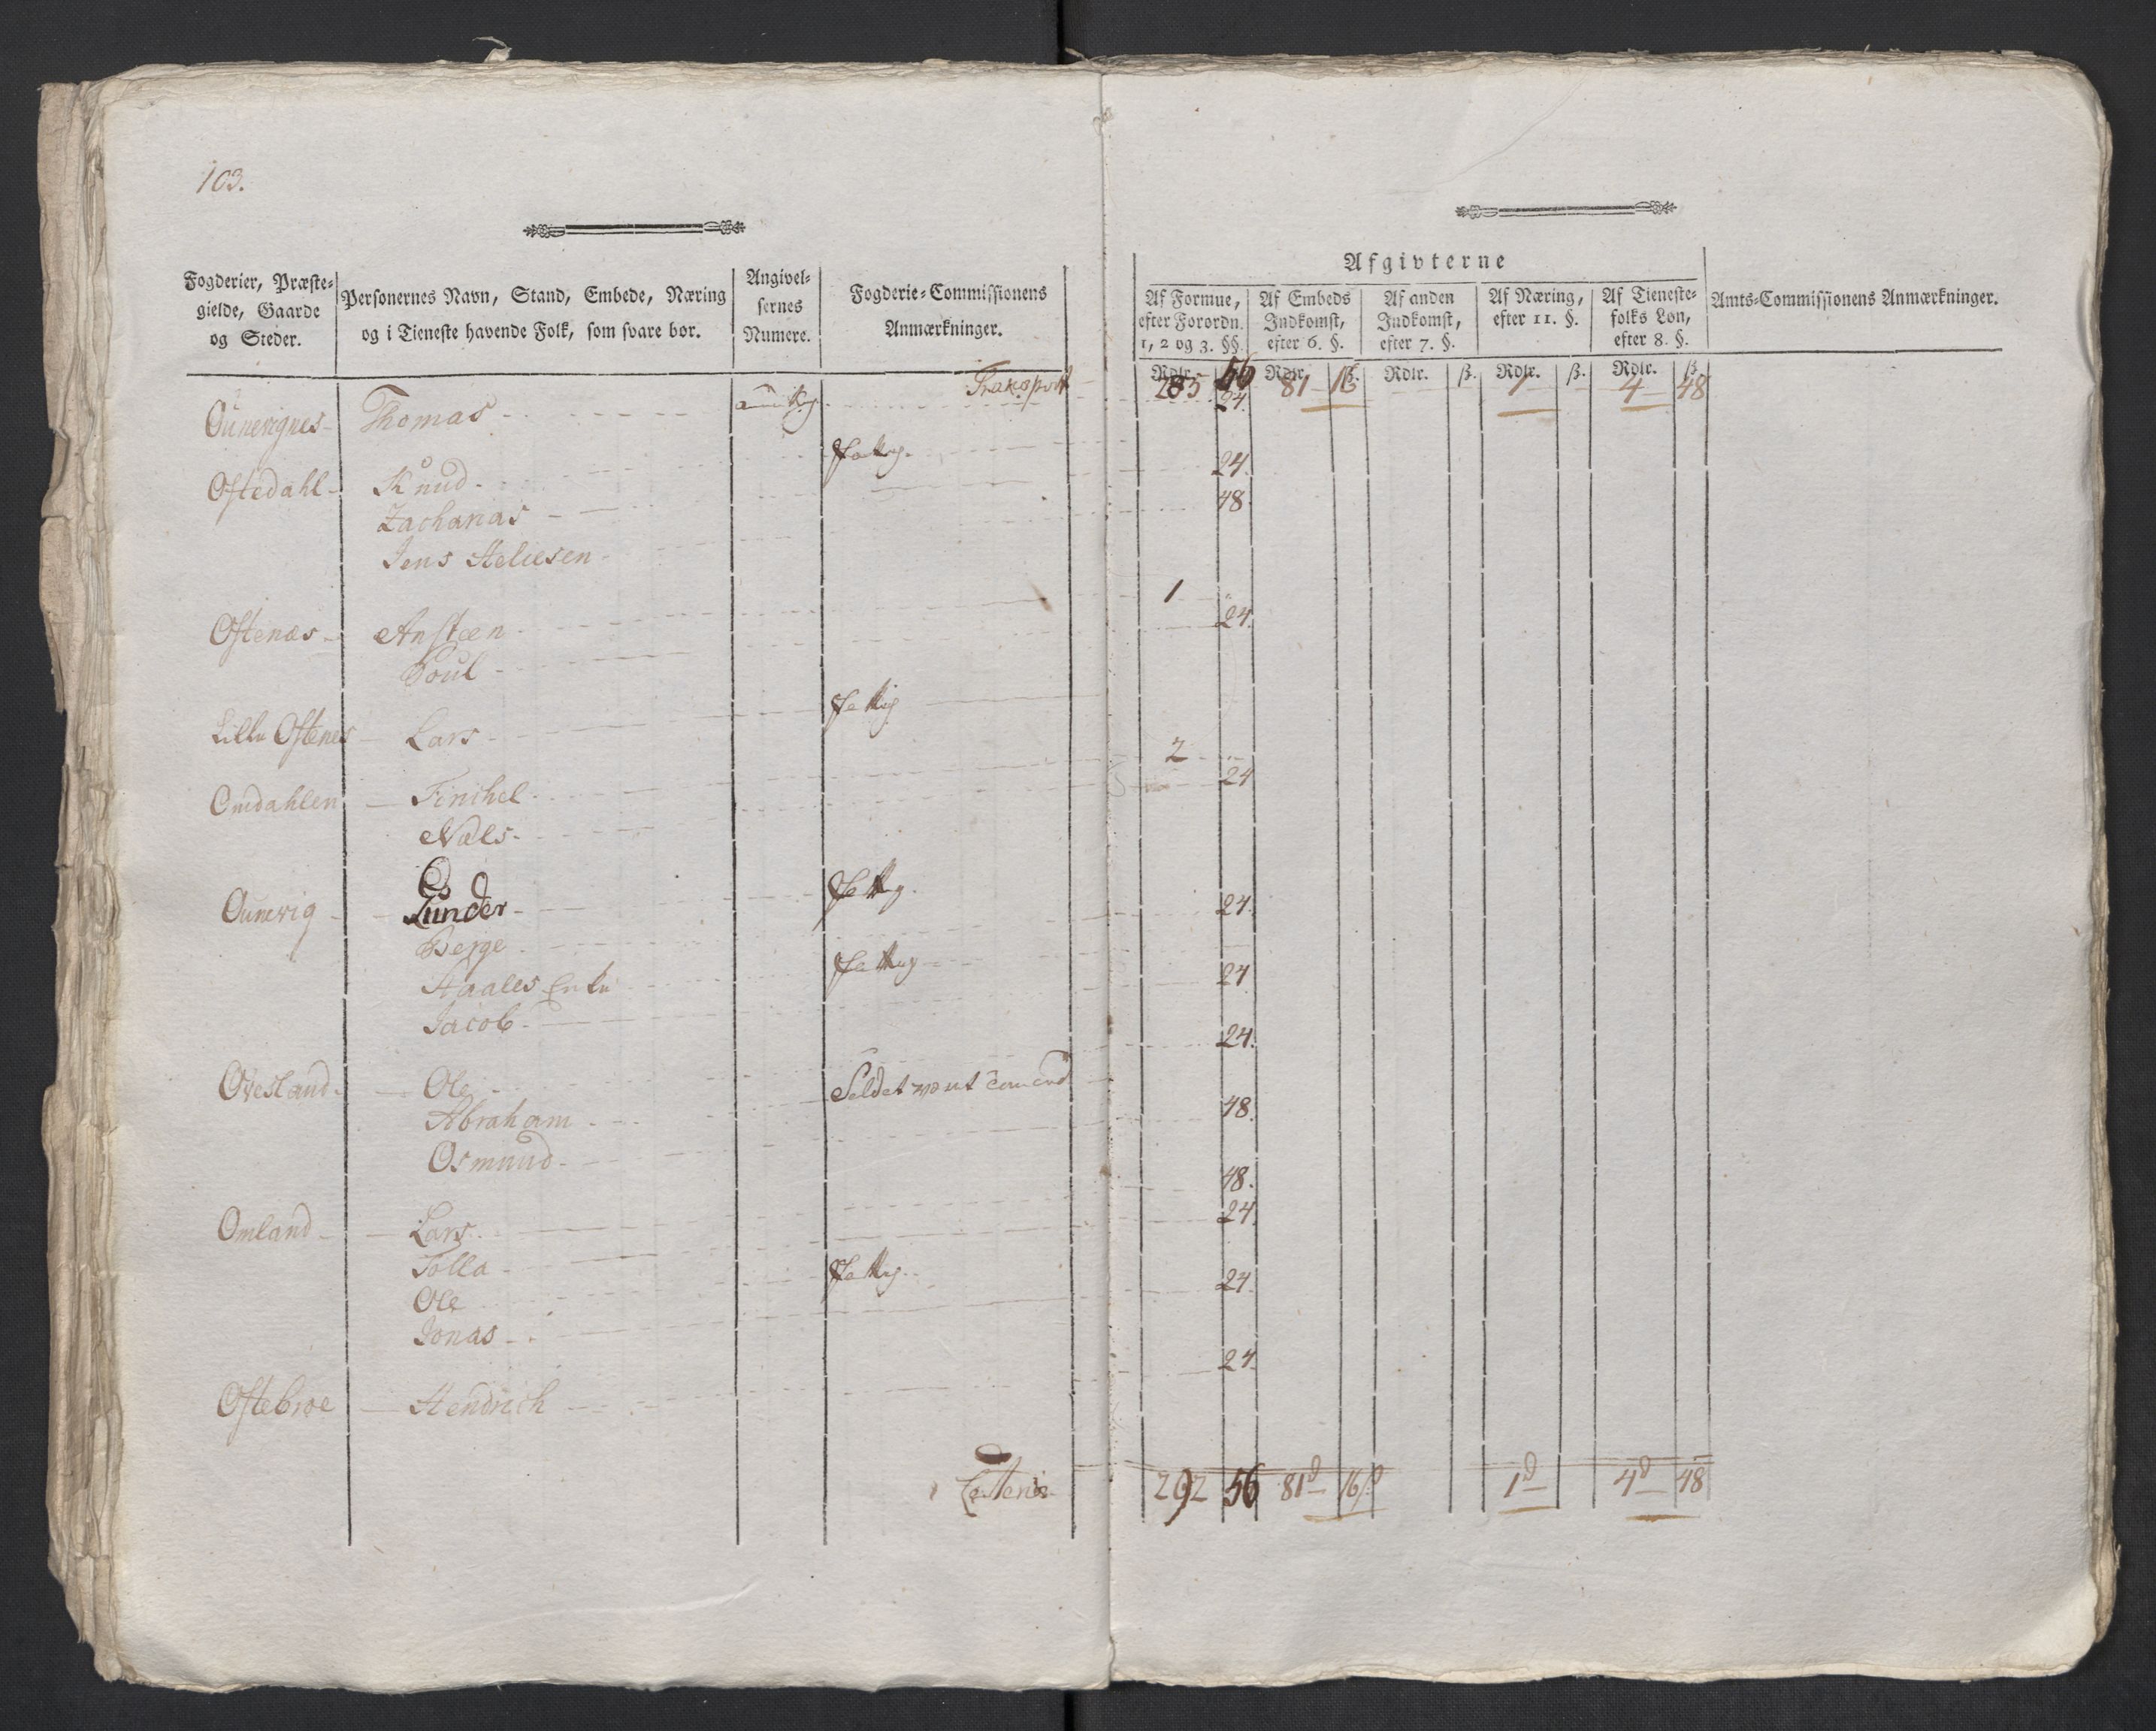 103.
Fogderier, Præste-
gielde, Gaarde
og Steder.
Personernes Navn, Stand, Embede, Næring
og i Tieneste havende Folk, som svare bør.
Angivel-
sernes
Numere.
Fogderie-Commissionens
Anmærkninger.
Afgivterne
Af Formue,
efter Forordn.
1, 2 og 3. §§.
Af Embeds
Indkomst,
efter 6. §.
Af anden
Indkomst,
efter 7. §.
Af Næring,
efter 11. §.
Af Tieneste-
folks Løn,
efter 8. §.
Amts-Commissionens Anmærkninger.
Rdlr. Rdlr. ß. Rdlr. ß. Rdlr. ß. Rdlr. ß.
Transport 285 56 81 16 1 4 48
Thomas 24.
Fattig.
Oftedahl Knud 24.
Zacharias 48.
Jens Helliesen
1
Oftenæs Ansteen 24.
Poul
Fattig
Lille Oftenes Lars
2
Omdahlen Finchel 24
Niels
Fattig.
Ounevig Tunder 24.
Berge
Fattig
Staales Enke 24.
Jacob
24.
Ovesland Ole
Abraham 48.
Osmund
48.
Omland Lars 24.
Tolla
Fattig
Ole 24.
Jonas
24.
Oftebroe Hendrich
Lateris 292 56 81 16ß 1 4 48